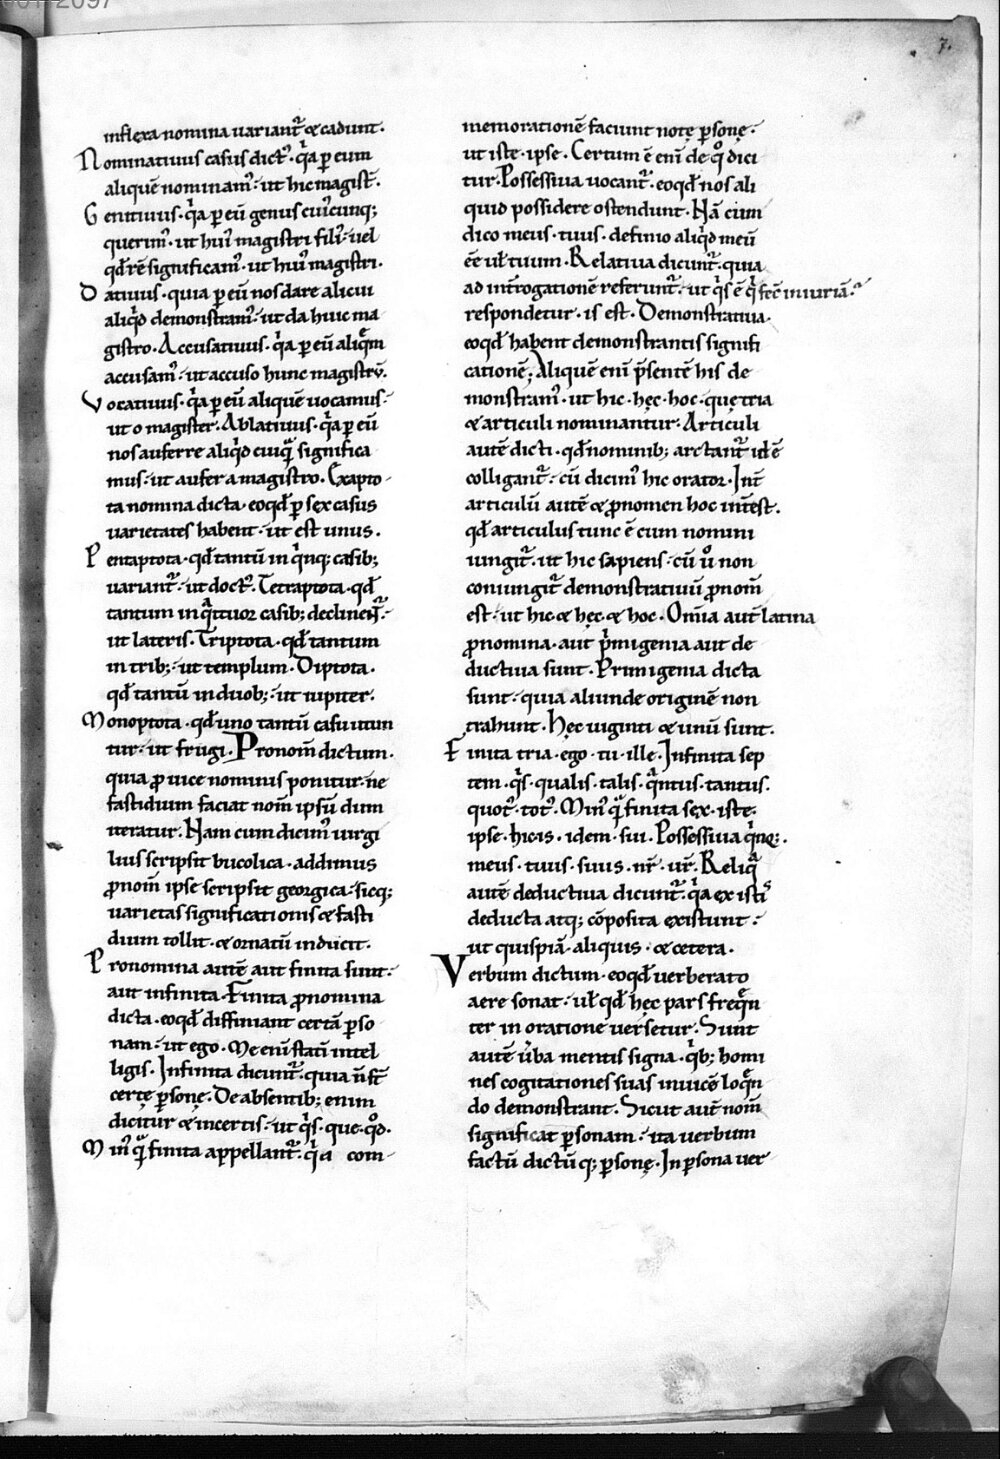 7.
inflexa nomina uariant᷑ & cadunt.
Nominatiuus casus dict᷒. q̇a ꝑ eum
aliquē nominam᷒. ut hic magist̄.
Genitiuus. q̇a ꝑ eū genus cuiꝰcunq;
querim᷒. ut huiꝰ magistri filiꝰ. uel
qd̄ rē significam᷒. ut huiꝰ magistri.
Datiuus. quia ꝑ eū nos dare alicui
aliqͥd demonstram᷒. ut da huic ma
gistro. Accusatiuus. q̇a ꝑ eū aliquē
accusam᷒. ut accuso hunc magistrū.
Vocatiuus. q̇a ꝑ eū aliquē uocamus.
ut o magister. Ablatiuus. q̇a ꝑ eū
nos auferre aliqͥd cuiqͣ significa
mus. ut aufer a magistro. Exapto
ta nomina dicta. eoqd̄ ꝑ sex casus
uarietates habent. ut est unus.
Pentaptota. qd̄ tantū in qͥnq; casib;
uariant᷑. ut doct᷒. Tetraptota. qd̄
tantum in qͣttuor casib; declinent᷑.
ut lateris. Triptota. qd̄ tantum
in trib;. ut templum. Diptota.
qd̄ tantū in duob;. ut iupiter.
Monoptota. qd̄ uno tantū casu utun
tur. ut frugi. Pronom̄ dictum.
quia ꝓ uice nominis ponitur. ne
fastidium faciat nom̄ ipsū dum
iteratur. Nam cum dicim᷒ uirgi
lius scripsit bucolica. addimus
ꝓnom̄ ipse scripsit georgica. sicq;
uarietas significationis & fasti
dium tollit. & ornatū inducit.
Pronomina autē aut finita sunt.
aut infinita. Finita ꝓnomina
dicta. eoqd̄ diffiniant certā ꝑso
nam. ut ego. Me eni statī intel
ligis. Infinita dicunt᷑. quia n̄ st̄
certę ꝑsonę. De absentib; enim
dicitur & incertis. ut qͥs. que. qͦd.
Minꝰ qͣ finita appellant᷑. q̇a com
memorationē faciunt notę ꝑsonę.
ut iste. ipse. Certum ē eni de qͦ dici
tur. Possessiua uocant᷑. eoqd̄ nos ali
quid possidere ostendunt. Nā cum
dico meus. tuus. definio aliqͥd meū
eē ul̄ tuum. Relatiua dicunt᷑. quia
ad int̄rogationē referunt᷑. ut qͥs ē qͥ fec̄ iniuriā.
respondetur. is est. Demonstratiua.
eoqd̄ habent demonstrantis signifi
cationē; Aliquē eni p̄sentē his de
monstram᷒. ut hic. hęc. hoc. quę tria
& articuli nominantur. Articuli
autē dicti. qd̄ nominib; arctant᷑ id ē
colligant᷑. cū dicim᷒ hic orator. Int̄
articulū autē & ꝓnomen hoc int̄est.
qd̄ articulus tunc ē cum nomini
iungit᷑. ut hic sapiens. cū ůͦ non
coniungit᷑ demonstratiuū ꝓnom̄
est. ut hic & hęc & hoc. Omnia aut̄ latina
ꝓnomina. aut pͥmigenia aut de
ductiua sunt. Primigenia dicta
sunt. quia aliunde originē non
trahunt. Hęc uiginti & unū sunt.
Finita tria. ego. tu. ille. Infinita sep
tem. qͥs. qualis. talis. qͣntus. tantus.
quot᷑. tot᷑. Minꝰ qͣ finita sex. iste.
ipse. hic. is. idem. sui. Possessiua qͥnq;.
meus. tuus. suus. nr̄. ur̄. Reliqͣ
autē deductiua dicunt᷑. q̇a ex istis
deducta atq; cōposita existunt.
ut quispiā. aliquis. & cetera.
Verbum dictum. eoqd̄ uerberato
aere sonat. ul̄ qd̄ hęc pars frequen
ter in oratione uersetur. Sunt
autē ůba mentis signa. qͥb; homi
nes cogitationes suas inuicē loquen
do demonstrant. Sicut aut̄ nom̄
significat ꝑsonam. ita uerbum
factū dictūq; ꝑsonę. In ꝑsona uer